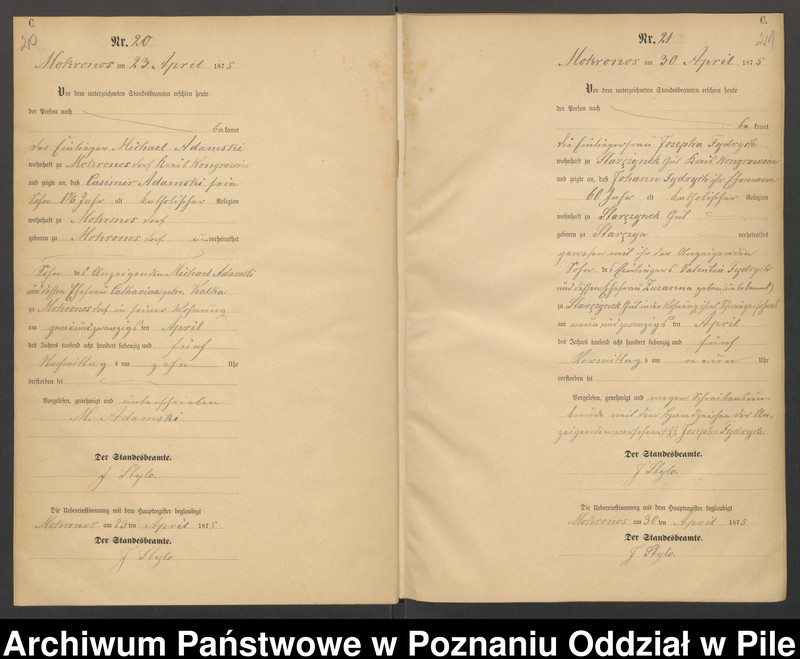 C.
210
Nr. 20
Mokronos am 23 April 1875
Vor dem unterzeichneten Standesbeamten erschien heute
der Person nach
bekannt
der Einlieger Michael Adamski
wohnhaft zu Mokronos dorf Kreis Wongrowiec
und zeigte an, daß Casimir Adamski sein
Sohn 1½ Jahr alt katholischer Religion
wohnhaft zu Mokronos dorf
geboren zu Mokronos dorf unverheirathet
Sohn des Anzeigenden Michael Adamski
und dessen Ehefrau Catharina gebor. Kafka
zu Mokronos dorf in seiner Wohnung
am zweiundzwanzigs ten April
des Jahres tausend acht hundert siebenzig und fünf
Nachmittag s um zehn Uhr
verstorben sei
Vorgelesen, genehmigt und unterschrieben
M. Adamski
Der Standesbeamte.
J Stylo.
Die Uebereinstimmung mit dem Hauptregister beglaubigt
Mokronos am 23 ten April 1875
Der Standesbeamte.
J Stylo
C.
211
Nr. 21
Mokronos am 30 April 1875
Vor dem unterzeichneten Standesbeamten erschien heute
der Person nach
bekannt
die Einliegerfrau Josepha Fydrych
wohnhaft zu Starczynek Gut Kreis Wongrowiec
und zeigte an, daß Johann Fydrych ihr Ehemann
60 Jahr alt katholischer Religion
wohnhaft zu Starczynek Gut
geboren zu verheirathet
gewesen mit ihr der Anzeigenden
Sohn des Einliegers Valentin Fydrych
und dessen Ehefrau Zuzanna geboren unbekannt
zu Starczynek Gut in der Wohnung ihres
am neunundzwanzigs ten April
des Jahres tausend acht hundert siebenzig und fünf
Vormittag s um neun Uhr
verstorben sei
Vorgelesen, genehmigt und wegen Schreibenskun-
 mit dem Handzeichen der An-
zeigenden versehen +++ Josepha Fydrych
Der Standesbeamte.
J Stylo.
Die Uebereinstimmung mit dem Hauptregister beglaubigt
Mokronos am 30 ten April 1875
Der Standesbeamte.
J Stylo.
Archiwum Państwowe w Poznaniu Oddział w Pile